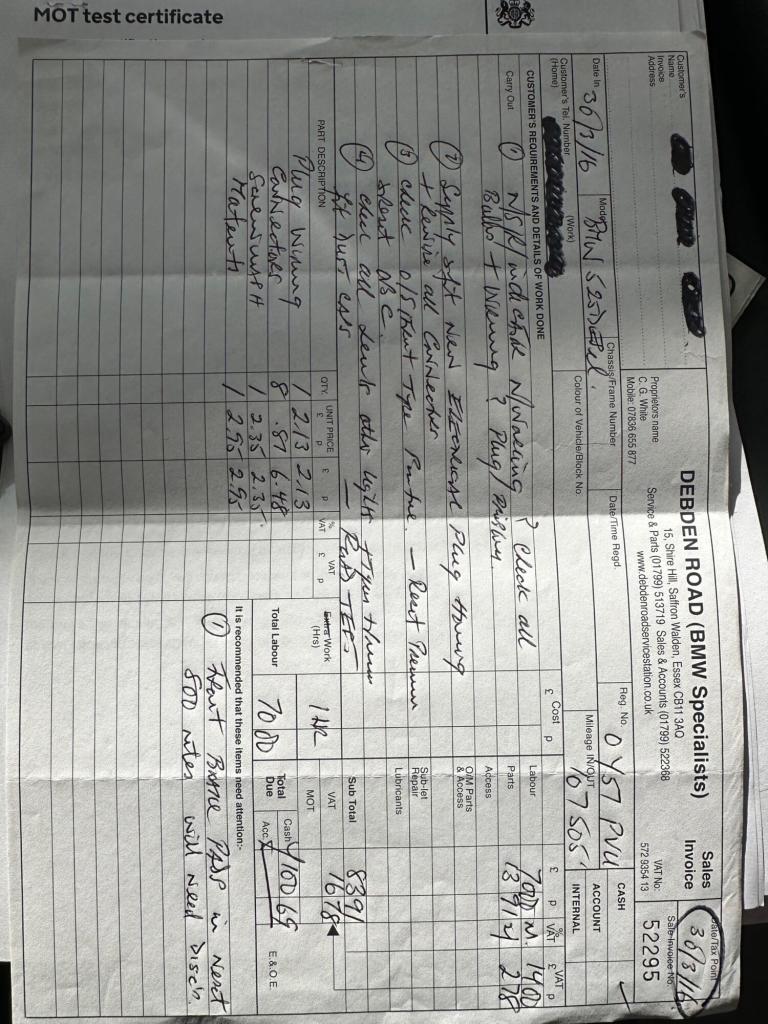 MOT test certificate
DEBDEN ROAD (BMW Specialists)
15, Shire Hill, Saffron Walden, Essex CB11 3AQ
Service & Parts (01799) 513719 Sales & Accounts (01799) 522368
www.debdenroadservicestation.co.uk
Sales
Invoice
VAT No:
572 9354 13
Date/Tax Point
30/3/16
Sale Invoice No.
52295
Customer's
Name
Invoice
Address
Proprietors name
C. G. White
Mobile: 07836 655 877
Date In 30/3/16
Model BMW 525 Diesel.
Chassis/Frame Number
Date/Time Regd.
Reg. No. OY57 PVU
CASH
Customer's Tel. Number
(Home)
(Work)
Colour of Vehicle/Block No.
Mileage IN/OUT 107505
ACCOUNT
INTERNAL
CUSTOMER'S REQUIREMENTS AND DETAILS OF WORK DONE
Cost
£ p
£ p
% VAT
VAT
£ p
Carry Out
① N/S/R indicator N/Working ? Check all
Bulbs + Wiring ? Plug/
② Supply & fit New Electrical Plug Housing
+ Rewire all Connectors
③ Check O/S Front Type
Reset OBC
④ Check all other lights
fit Dust Caps
Labour 70 00 14 00
Parts 13 91 2 78
Access
O/M Parts
& Access
Sub-let
Repair
Lubricants
PART DESCRIPTION
QTY.
UNIT PRICE
£ p
£ p
% VAT
VAT
£ p
Extra Work
(Hrs) 1 HR
Sub Total 83 91
VAT 16 78
MOT
Plug Wiring 1 2.13 2.13
Connectors 8 .81 6.48
1 2.35 2.35
Materials 1 2.95 2.95
Total Labour 70 00
Total
Due
Cash 100 69
Acc X
E.&O.E.
It is recommended that these items need attention:-
① Front Brake Pads in Next
800 miles will need Discs.